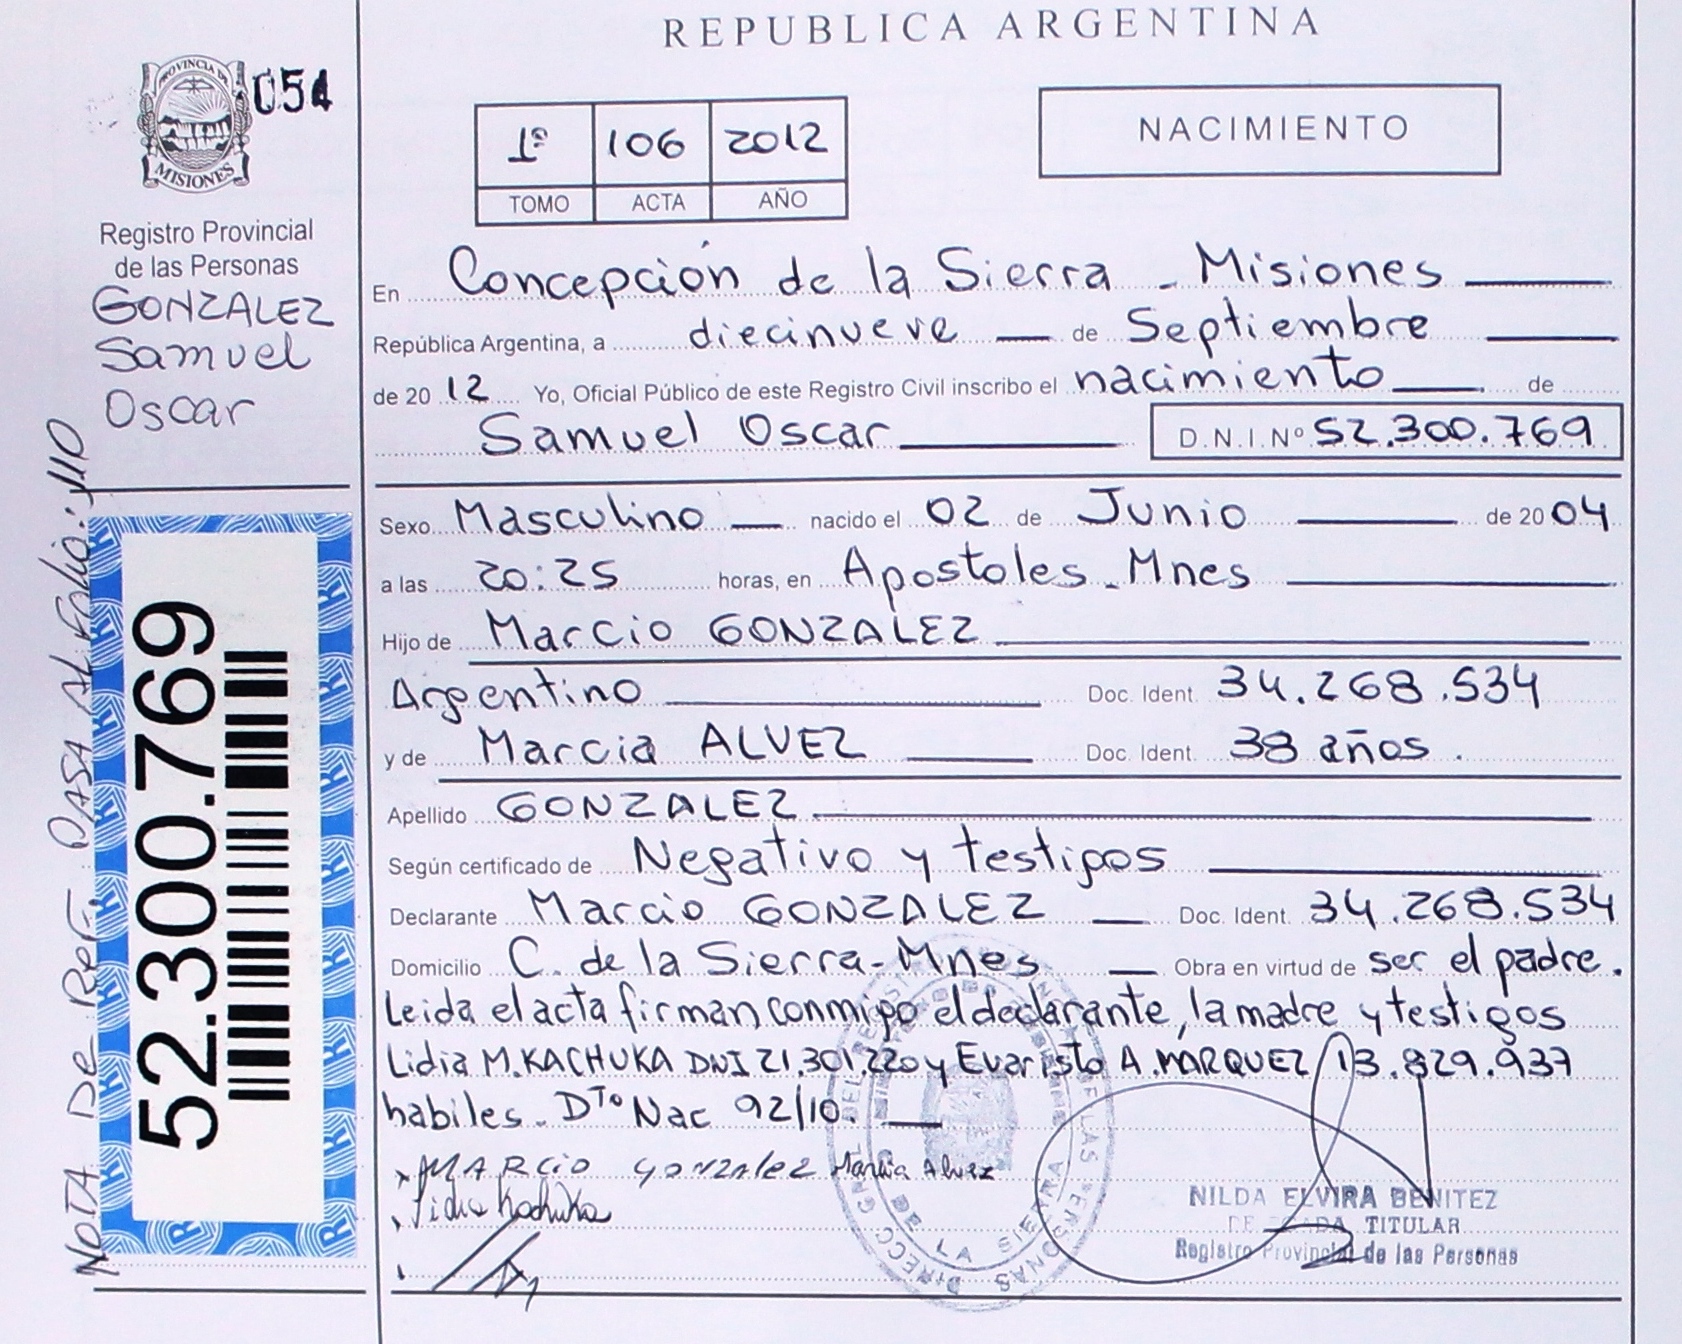 REPUBLICA ARGENTINA
PROVINCIA DE
MISIONES
054
1º 106 2012
TOMO ACTA AÑO
NACIMIENTO
Registro Provincial
de las Personas
GONZALEZ
Samuel
Oscar
NOTA De Ref. PASA AL Folio: 110
52.300.769
En Concepción de la Sierra - Misiones
República Argentina, a diecinueve de Septiembre
de 2012 Yo, Oficial Público de este Registro Civil inscribo el nacimiento de
Samuel Oscar D.N.I. Nº 52.300.769
Sexo Masculino nacido el 02 de Junio de 2004
a las 20:25 horas, en Apostoles - Mnes
Hijo de Marcio GONZALEZ
Argentino Doc. Ident. 34.268.534
y de Marcia ALVEZ Doc. Ident. 38 años.
Apellido GONZALEZ
Según certificado de Negativo y testigos
Declarante Marcio GONZALEZ Doc. Ident. 34.268.534
Domicilio C. de la Sierra - Mnes Obra en virtud de ser el padre.
Leida el acta firman conmigo el declarante, la madre y testigos
Lidia M. KACHUKA DNI 21.301.220 y Evaristo A. MARQUEZ 13.829.937
habiles. Dto Nac 92/10.
MARCIO GONZALEZ Marcia Alvez
Lidia Kachuka
DE LA SIERRA
NILDA ELVIRA BENITEZ
TITULAR
Registro Provincial de las Personas